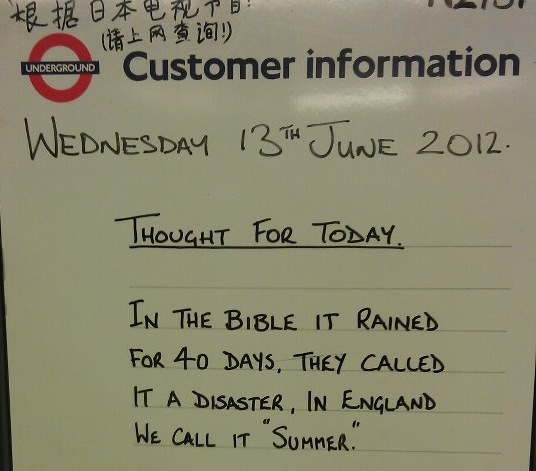 根据日本电视节目!
(请上网查询!)
UNDERGROUND
Customer information
WEDNESDAY 13TH JUNE 2012.
THOUGHT FOR TODAY.
IN THE BIBLE IT RAINED
FOR 40 DAYS, THEY CALLED
IT A DISASTER, IN ENGLAND
WE CALL IT "SUMMER."